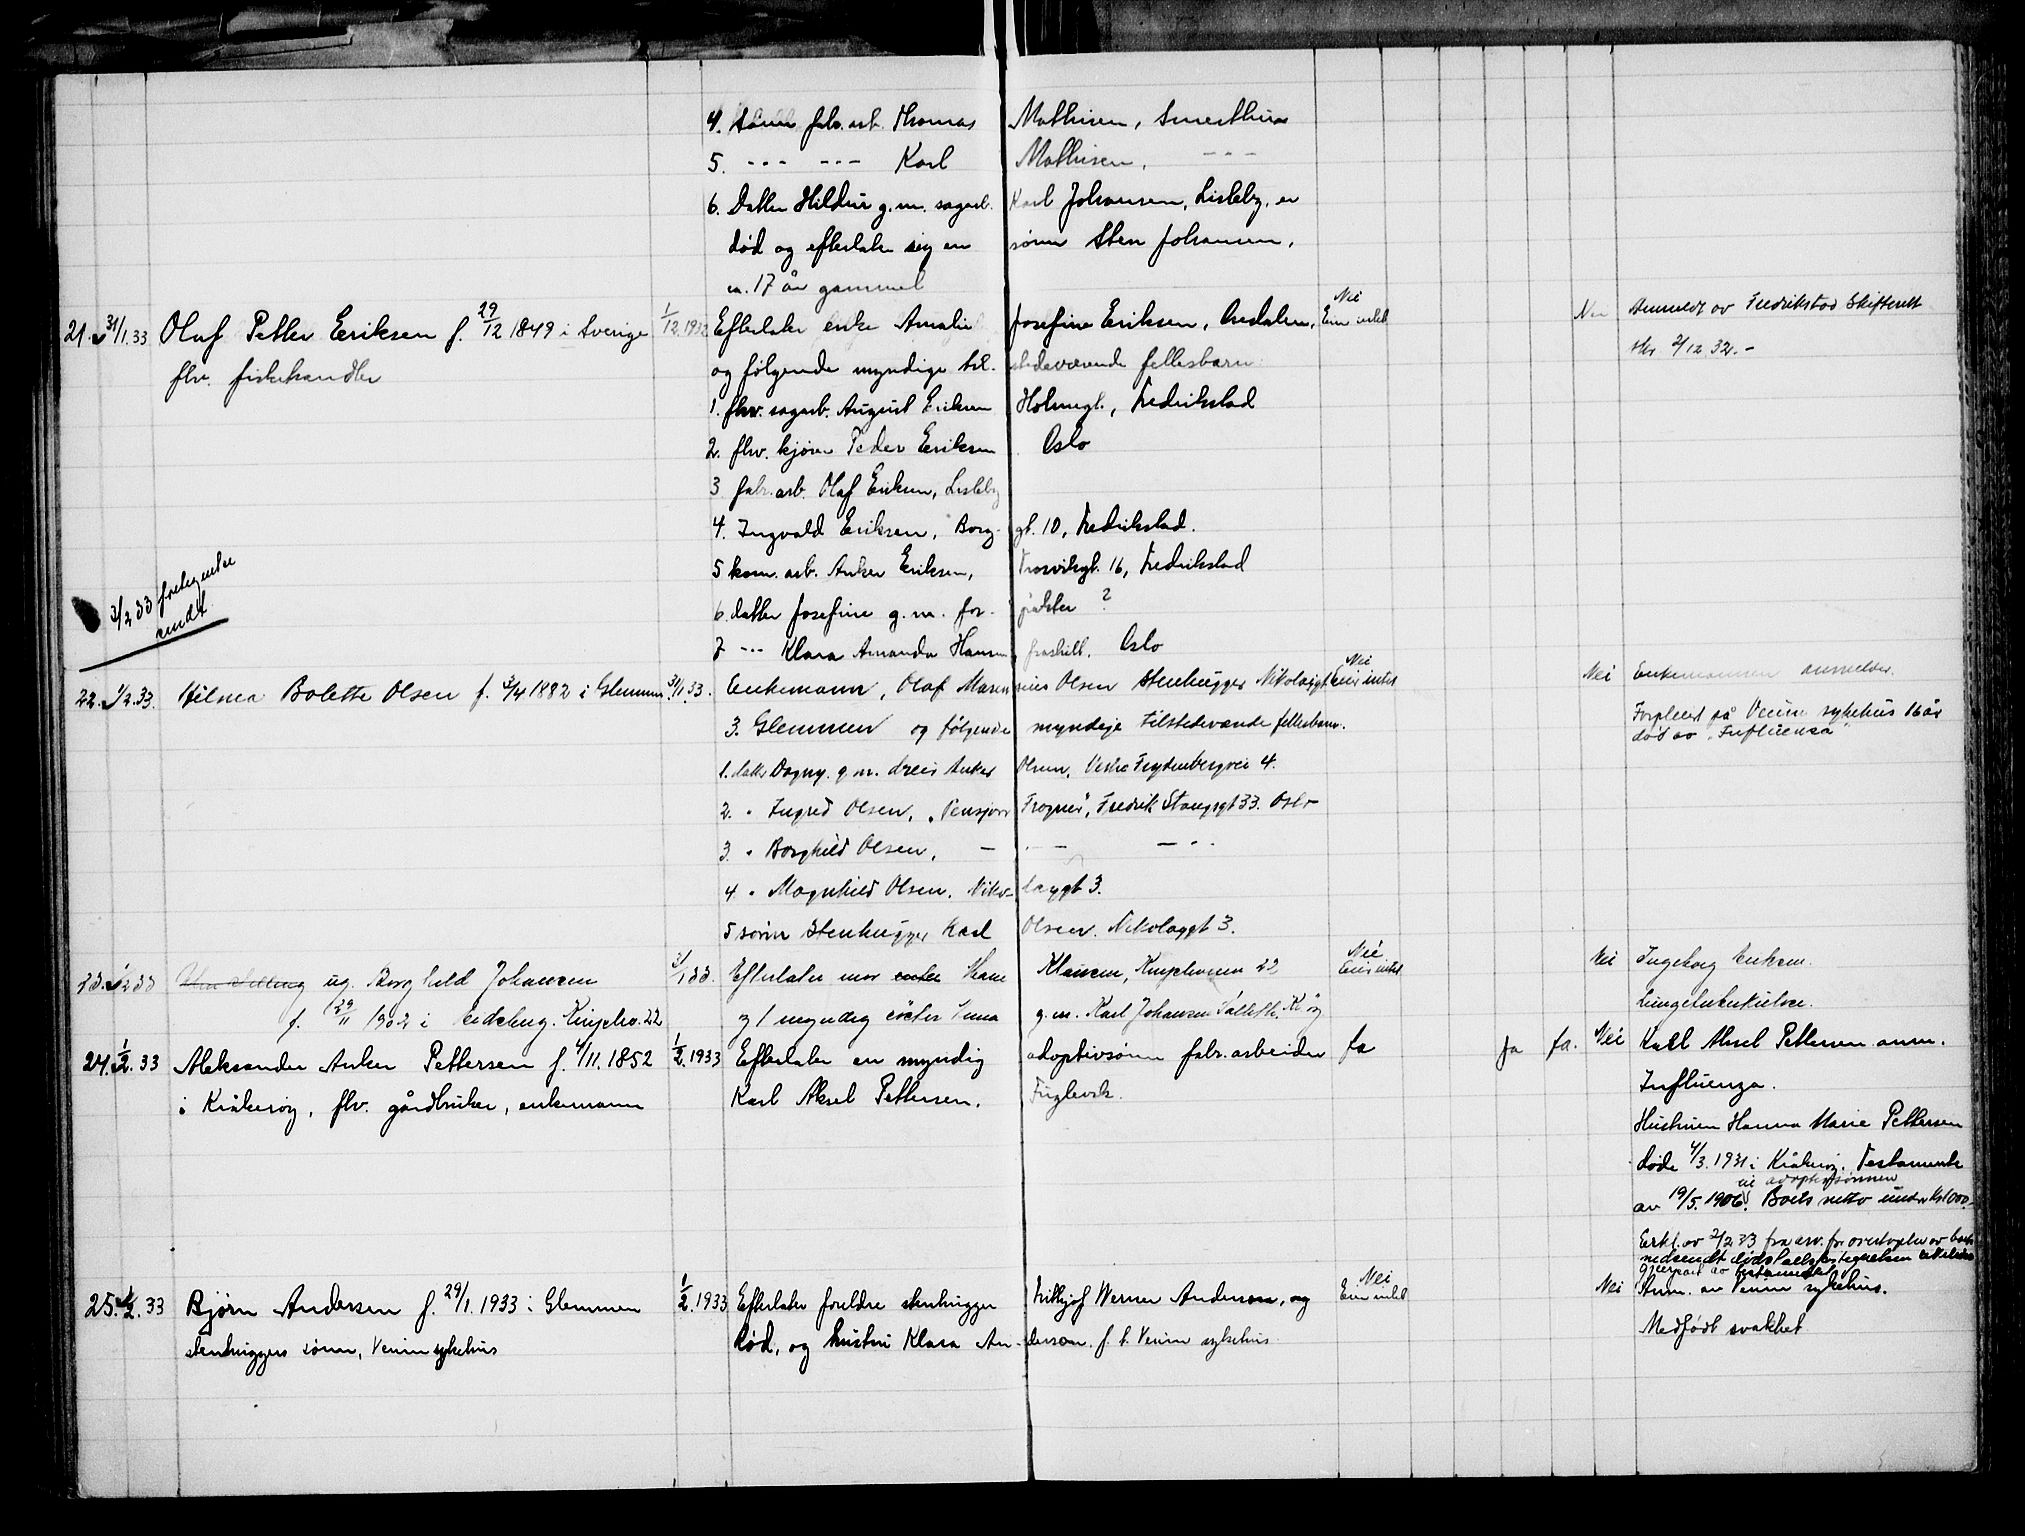 4. Sønn fabr. arb. Thomas Mathisen, Smertulien
5. --- --- Karl Mathisen, ---
6. Datter Hildur g.m. sagarb. Karl Johansen, Lisleby, er
død og efterlater sig en sønn Sten Johansen,
ca. 17 år gammel
21. 31/1.33 Olaf Petter Eriksen f. 29/12 1849 i Sverige 1/12.1932 Efterlater enke Amalie Josefine Eriksen, Ambjørnrød, Nei Eier intet Nei Anmeldt av Fredrikstad Skifterett
flv. fiskehandler og følgende myndige tilstedeværende fellesbarn: skr 2/12 32.-
1. flv. sagarb. August Eriksen Holmegt., Fredrikstad
2. flv. kjører Peder Eriksen Oslo
3 fabr. arb. Olaf Eriksen, Lisleby
4. Ingvald Eriksen, Borggt. 10, Fredrikstad.
5 kom. arb. Anker Eriksen, Trosvikgt. 16, Fredrikstad
3/2 33 foregående sendt
6. datter Josefine g.m. for- ?
7 --- Klara Amanda Hansen, fraskilt. Oslo
22. 1/2.33. Hilma Bolette Olsen f. 3/4 1882 i Glemmen. 31/1.33. Enkemann, Olaf Marenius Olsen Stenhugger Nikolaigt Nei Eier intet Nei Enkemannen anmelder.
3. Glemmen og følgende myndige tilstedeværende fellesbarn. Forpleiet på Veum sykehus 16 år
død av "Influensa"
1. datter Dagny g.m. dreier Anker Olsen, Vestre Frydenbergvei 4.
2. " Ingrid Olsen, "Pensjon Frogner", Fredrik Stangsgt 33. Oslo
3. " Borghild Olsen, — " — — " "
4 " Magnhild Olsen. Nikolaygt 3.
5 sønn Stenhugger Karl Olsen. Nikolaygt 3.
23. 1/2 33 ug. Borghild Johansen 31/1 33. Efterlater mor Klausen, 22 Nei Eier intet Nei Ingeborg Eriksen.
f. 29/11 1902 i 22 og 1 myndig søster g.m. Karl Johansen Lungetuberkulose.
24. 1/2. 33 Aleksander Anker Pettersen f. 4/11. 1852 1/2.1933 Efterlater en myndig adoptivsønn fabr. arbeider Ja Ja Ja. Nei Karl Aksel Pettersen anm.
i Kråkerøy, flv. gårdbruker, enkemann Karl Aksel Pettersen, Fuglevik. Influenza.
Hustruen Hanna Marie Pettersen
døde 4/3. 1931 i Kråkerøy. Testamente
til adoptivsønnen
av 19/5. 1906. Boets netto under Kr 1000.-
Erkl. av 2/2 33 fra arv. for overtagelse av boet
nedsendt dødsfallsfortegnelsen
av testamentet
25. 1/2. 33 Bjørn Andersen f. 29/1. 1933 i Glemmen 1/2.1933 Efterlater foreldre stenhugger Fritjof Werner Andersen, og Nei Eier intet Nei Anm. av Veum sykehus.
stenhuggers sønn, Veum sykehus død, og hustru Klara Andersen. f.t. Veum sykehus. Medfødt svakhet